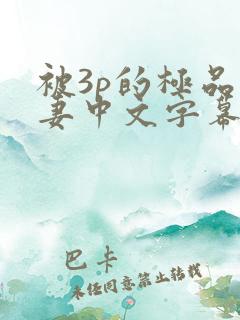 被3p的極品
妻中文字幕
巴卡
未经同意禁止转载